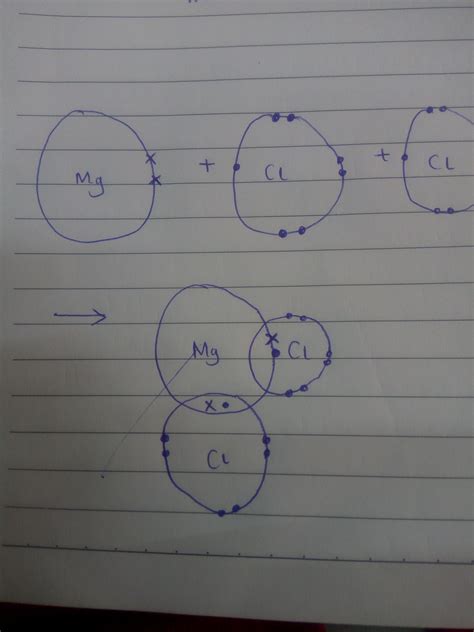 Mg + Cl + Cl
→ Mg Cl
Cl